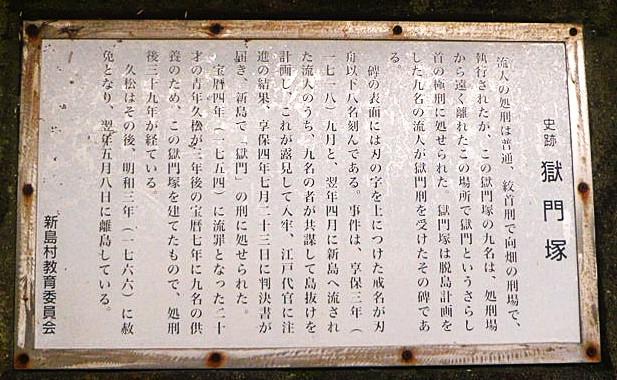 史跡 獄門塚
流人の処刑は普通、絞首刑で向畑の刑場で、
執行されたが、この獄門塚の九名は、処刑場
から遠く離れたこの場所で獄門というさらし
首の極刑に処せられた 獄門塚は脱島計画を
した九名の流人が獄門刑を受けたその碑であ
る。
碑の表面には刃の字を上につけた戒名が刃
舟以下八名刻んである。事件は、享保三年(
一七一八)九月と、翌年四月に新島へ流され
た流人のうち、九名の者が共謀して島抜けを
計画し、これが露見して入牢、江戸代官に注
進の結果、享保四年七月二十三日に判決書が
届き、新島で「獄門」の刑に処せられた。
宝暦四年(一七五四)に流罪となった二十
才の青年久松が三年後の宝暦七年に九名の供
養のため、この獄門塚を建てたもので、処刑
後三十九年が経ている。
久松はその後、明和三年(一七六六)に赦
免となり、翌年五月八日に離島している。
新島村教育委員会